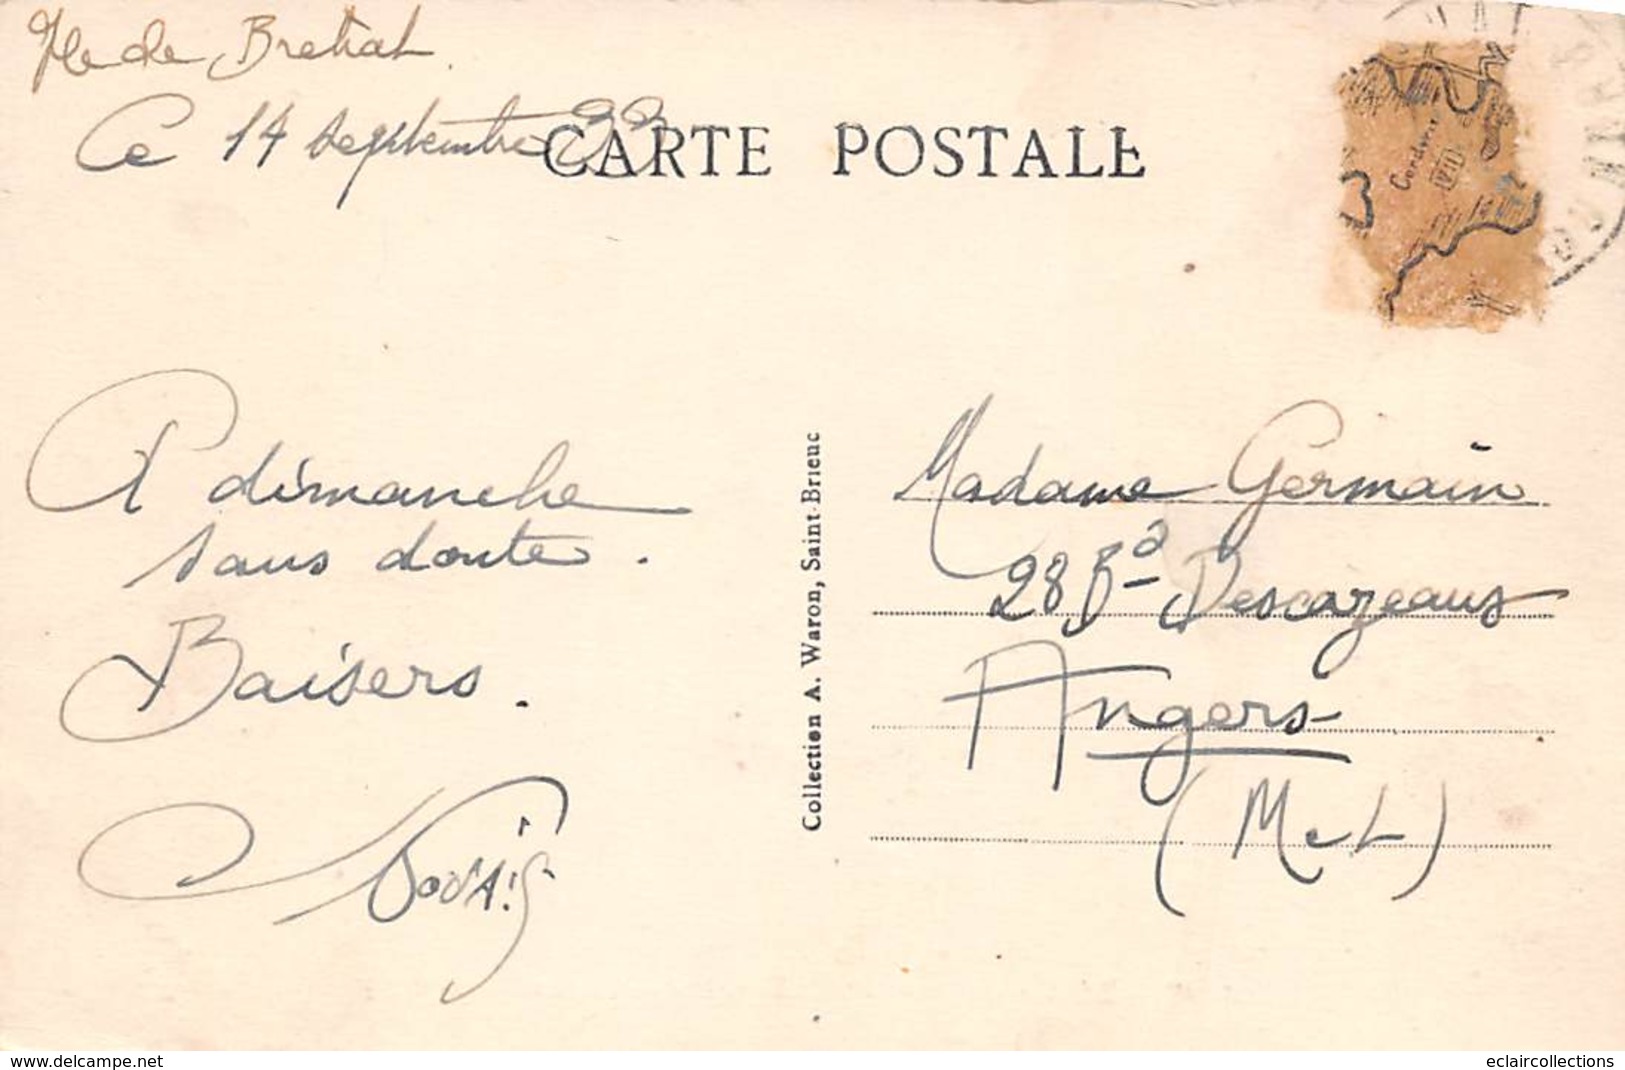 Ile de Brehat.
Ce 14 septembre 33
CARTE POSTALE
Cordver
VII
A dimanche
sans doute.
Baisers.
Collection A. Waron, Saint-Brieuc
Madame Germain
28 Bd Descazeaux
Angers
(M et L)
www.delcampe.net
eclaircollections